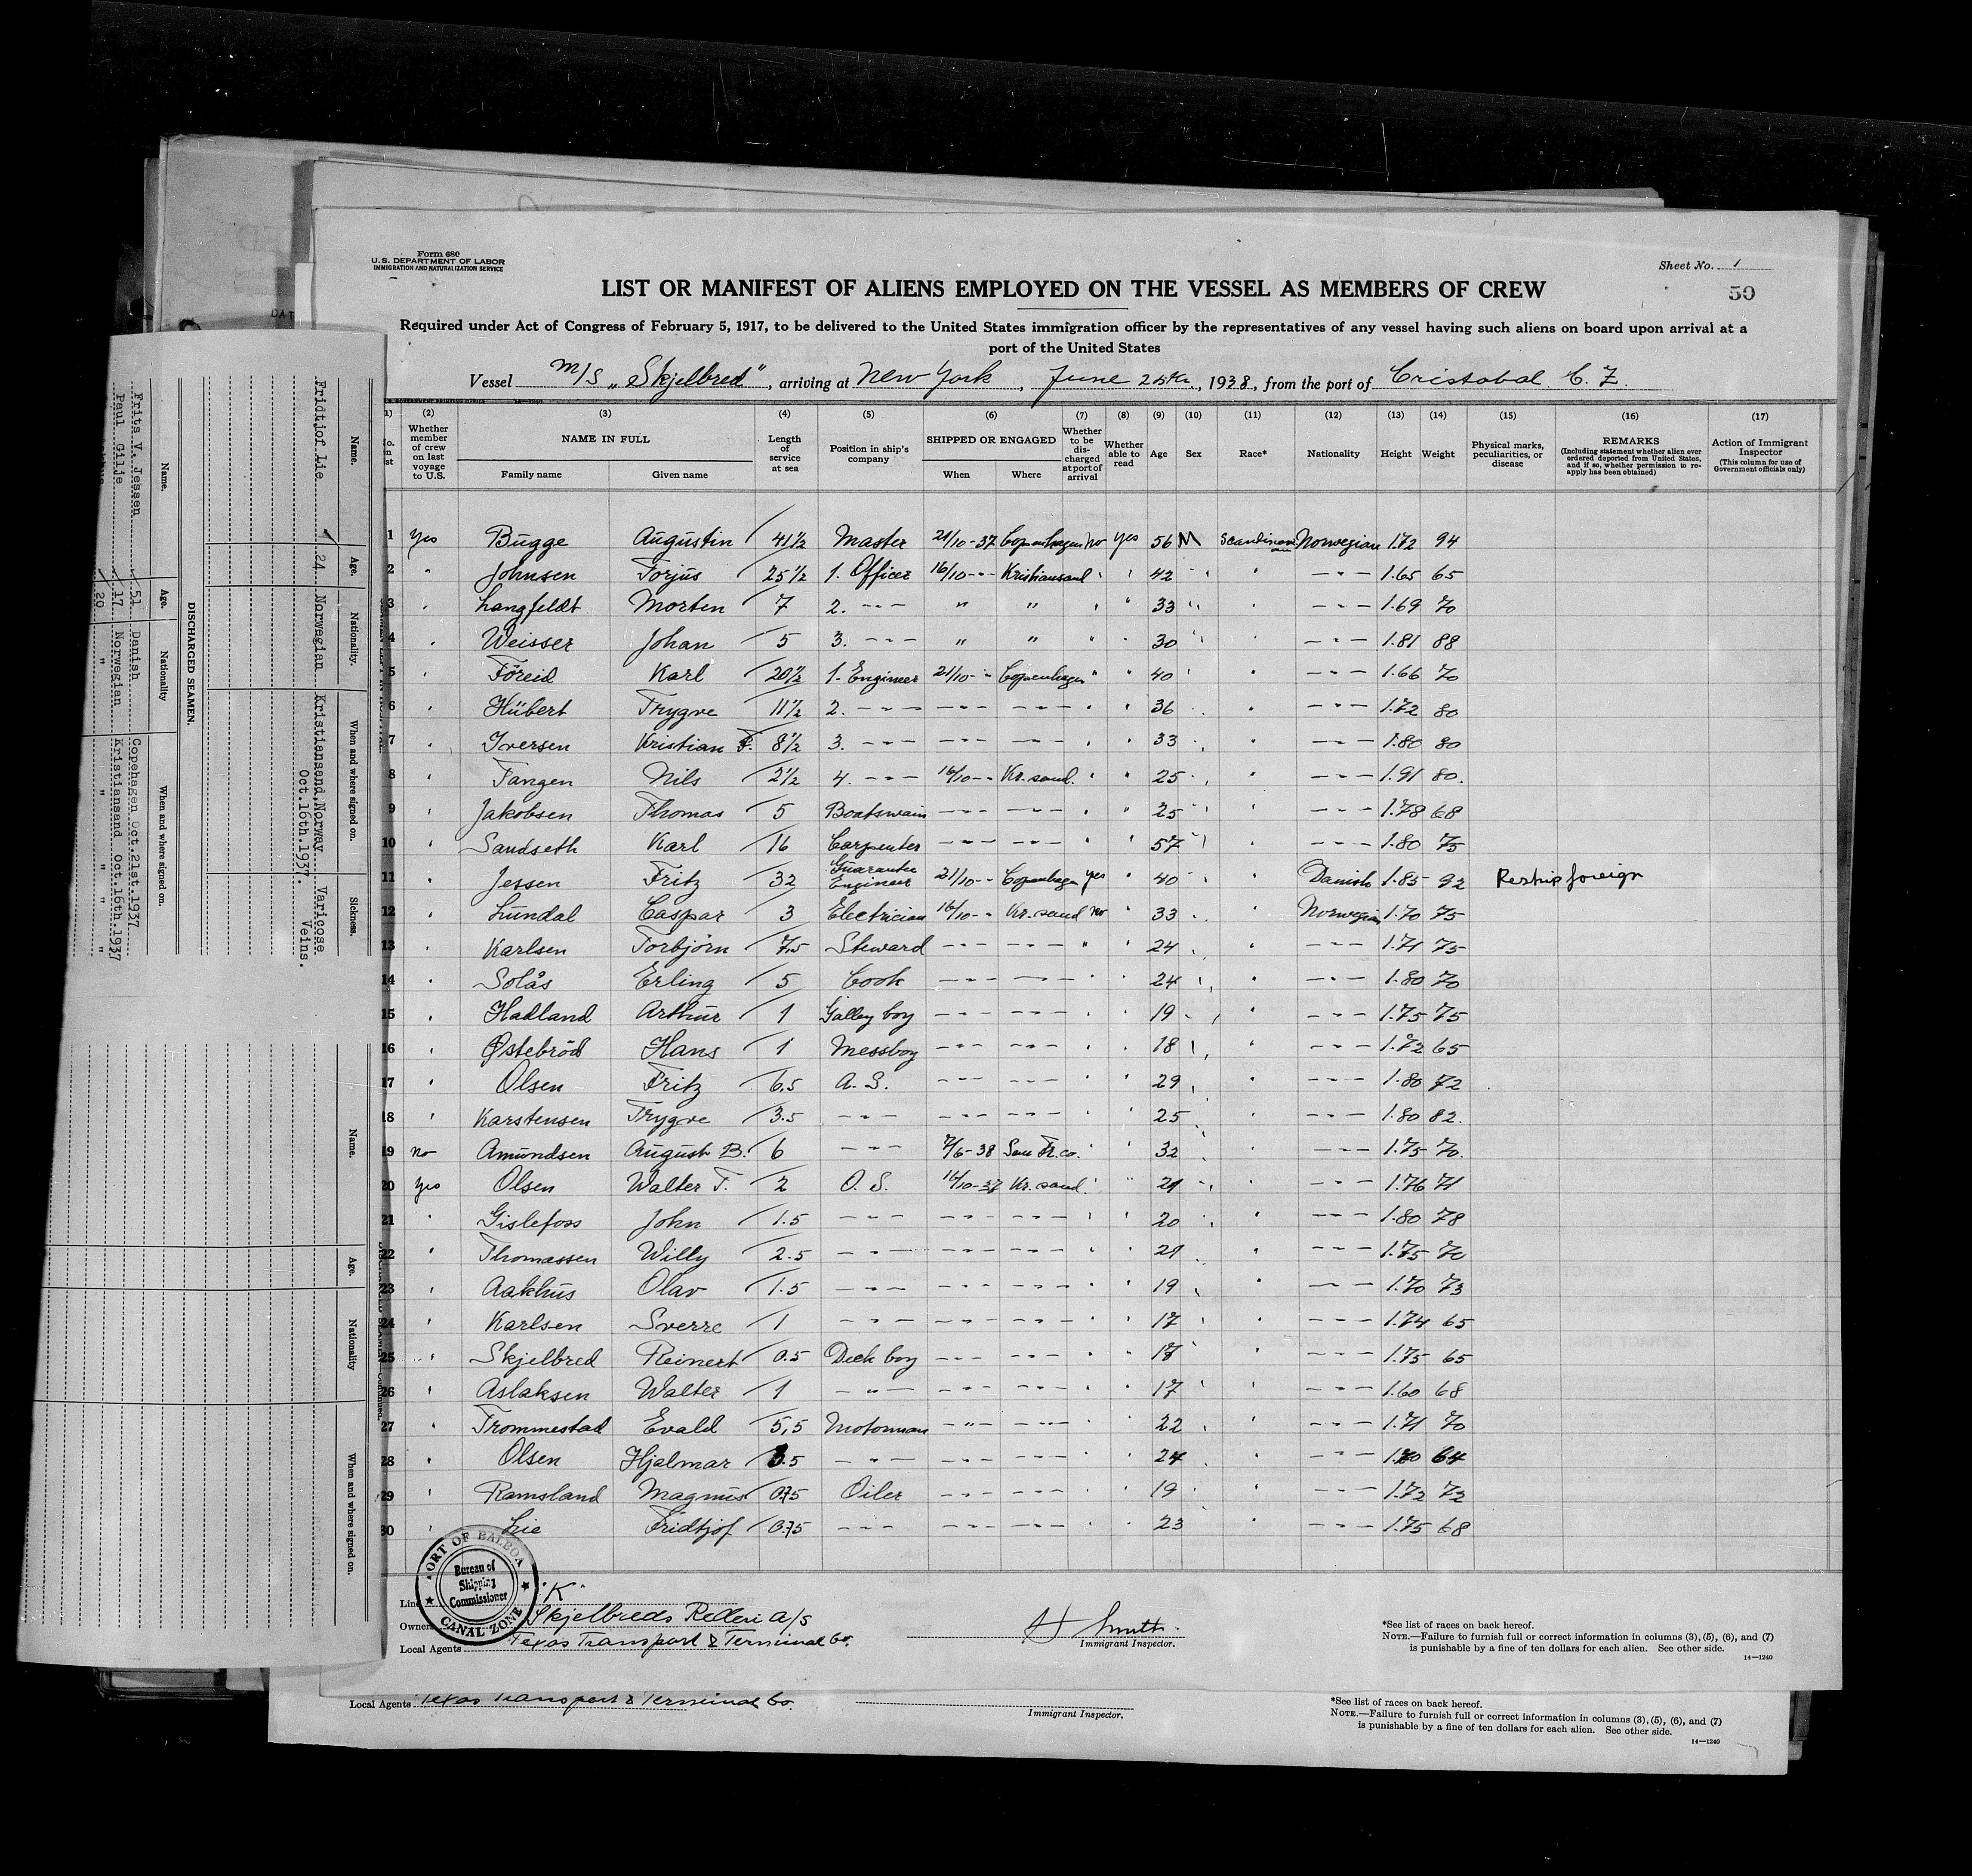 Form 680
U.S. DEPARTMENT OF LABOR
IMMIGRATION AND NATURALIZATION SERVICE
Sheet No. 1
50
LIST OR MANIFEST OF ALIENS EMPLOYED ON THE VESSEL AS MEMBERS OF CREW
Required under Act of Congress of February 5, 1917, to be delivered to the United States immigration officer by the representatives of any vessel having such aliens on board upon arrival at a
port of the United States
Vessel M/S „Skjelbred", arriving at New York, June 25th, 1938, from the port of Cristobal C. Z.
(1) (2) (3) (4) (5) (6) (7) (8) (9) (10) (11) (12) (13) (14) (15) (16) (17)
Whether member of crew on last voyage to U.S. NAME IN FULL Family name Given name Length of service at sea Position in ship's company SHIPPED OR ENGAGED When Where Whether to be discharged at port of arrival Whether able to read Age Sex Race* Nationality Height Weight Physical marks, peculiarities, or disease REMARKS (Including statement whether alien ever ordered deported from United States, and if so, whether permission to reapply has been obtained) Action of Immigrant Inspector (This column for use of Government officials only)
1 Yes Bugge Augustin 41½ Master 21/10-37 Copenhagen no yes 56 M Scandinavian Norwegian 1.72 94
2 " Johnsen Torjus 25½ 1. Officer 16/10-- Kristiansand " " 42 " " --- 1.65 65
3 " Langfeldt Morten 7 2. --- " " " " 33 " --- 1.69 70
4 " Weisser Johan 5 3. --- " " " " 30 " " --- 1.81 88
5 " Föreid Karl 20½ 1. Engineer 21/10- " Copenhagen " " 40 " " --- 1.66 70
6 " Hübert Trygve 11½ 2. --- --- --- " " 36 " " --- 1.72 80
7 " Iversen Kristian F. 8½ 3. --- --- --- " " 33 " " --- 1.80 80
8 " Fangen Nils 2½ 4. --- 16/10-- Kr. sand. " " 25 " " --- 1.91 80.
9 " Jakobsen Thomas 5 Boatswain --- --- " " 25 " " --- 1.78 68
10 " Sandseth Karl 16 Carpenter --- --- " " 57 " " --- 1.80 75
11 " Jessen Fritz 32 Guarantee Engineer 21/10- " Copenhagen yes " 40 " " Danish 1.85 92 Reship foreign
12 " Lundal Caspar 3 Electrician 16/10- " Kr. sand no " 33 " " Norwegian 1.70 75
13 " Karlsen Torbjörn 7,5 Steward --- --- " " 24 " " --- 1.71 75
14 " Solås Erling 5 Cook --- --- " " 24 " " --- 1.80 70
15 " Hadland Arthur 1 Galley boy --- --- " " 19 " " --- 1.75 75
16 " Østebröd Hans 1 Messboy --- --- " " 18 " " --- 1.72 65
17 " Olsen Fritz 6.5 A. S. --- --- " " 29 " " --- 1.80 72
18 " Karstensen Trygve 3.5 --- --- --- " " 25 " " --- 1.80 82.
19 no Amundsen August B. 6 --- 7/6-38 San Fr.co. " " 32 " " --- 1.75 70.
20 yes Olsen Walter T. 2 O. S. 16/10-37 Kr. sand. " " 21 " " --- 1.76 71
21 " Gislefoss John 1.5 --- --- --- " " 20 " " --- 1.80 78
22 " Thomassen Willy 2.5 --- --- --- " " 21 " " --- 1.75 70
23 " Aakhus Olav 1.5 --- --- --- " " 19 " " --- 1.70 73
24 " Karlsen Sverre 1 --- --- --- " " 17 " " --- 1.74 65
25 " Skjelbred Reinert 0.5 Deck boy --- --- " " --- 1.75 65
26 " Aslaksen Walter 1 --- --- --- " " 17 " " --- 1.60 68
27 " Trommestad Evald 5,5 Motorman --- --- " 22 " " --- 1.71 70
28 " Olsen Hjalmar --- --- --- " " 24 " " --- 64
29 " Ramsland Magnus 0.75 Oiler --- --- " " 19 " " --- 1.72 72
30 " Lie Fridtjof 0.75 --- --- --- " " 23 " " --- 1.75 68
Line "K"
Owners Skjelbreds Rederi A/S
Local Agents Texas Transport & Terminal Co.
H Smith.
Immigrant Inspector.
*See list of races on back hereof.
NOTE.—Failure to furnish full or correct information in columns (3), (5), (6), and (7)
is punishable by a fine of ten dollars for each alien. See other side.
14—1240
PORT OF BALBOA
Bureau of
Shipping
Commissioner
CANAL ZONE
Local Agents Texas Transport & Terminal Co.
Immigrant Inspector.
*See list of races on back hereof.
NOTE.—Failure to furnish full or correct information in columns (3), (5), (6), and (7)
is punishable by a fine of ten dollars for each alien. See other side.
14—1240
Name. Age. Nationality. When and where signed on. Sickness.
Fridtjof Lie 24 Norwegian Kristiansand, Norway Varicose
Oct.16th.1937. Veins.
DISCHARGED SEAMEN.
Name. Age. Nationality When and where signed on.
Frits V. Jessen 51 Danish Copehagen Oct.21st.1937
Paul Gilje 17 Norwegian Kristiansand Oct.16th.1937
20 " " "
Name. Age. Nationality When and where signed on.